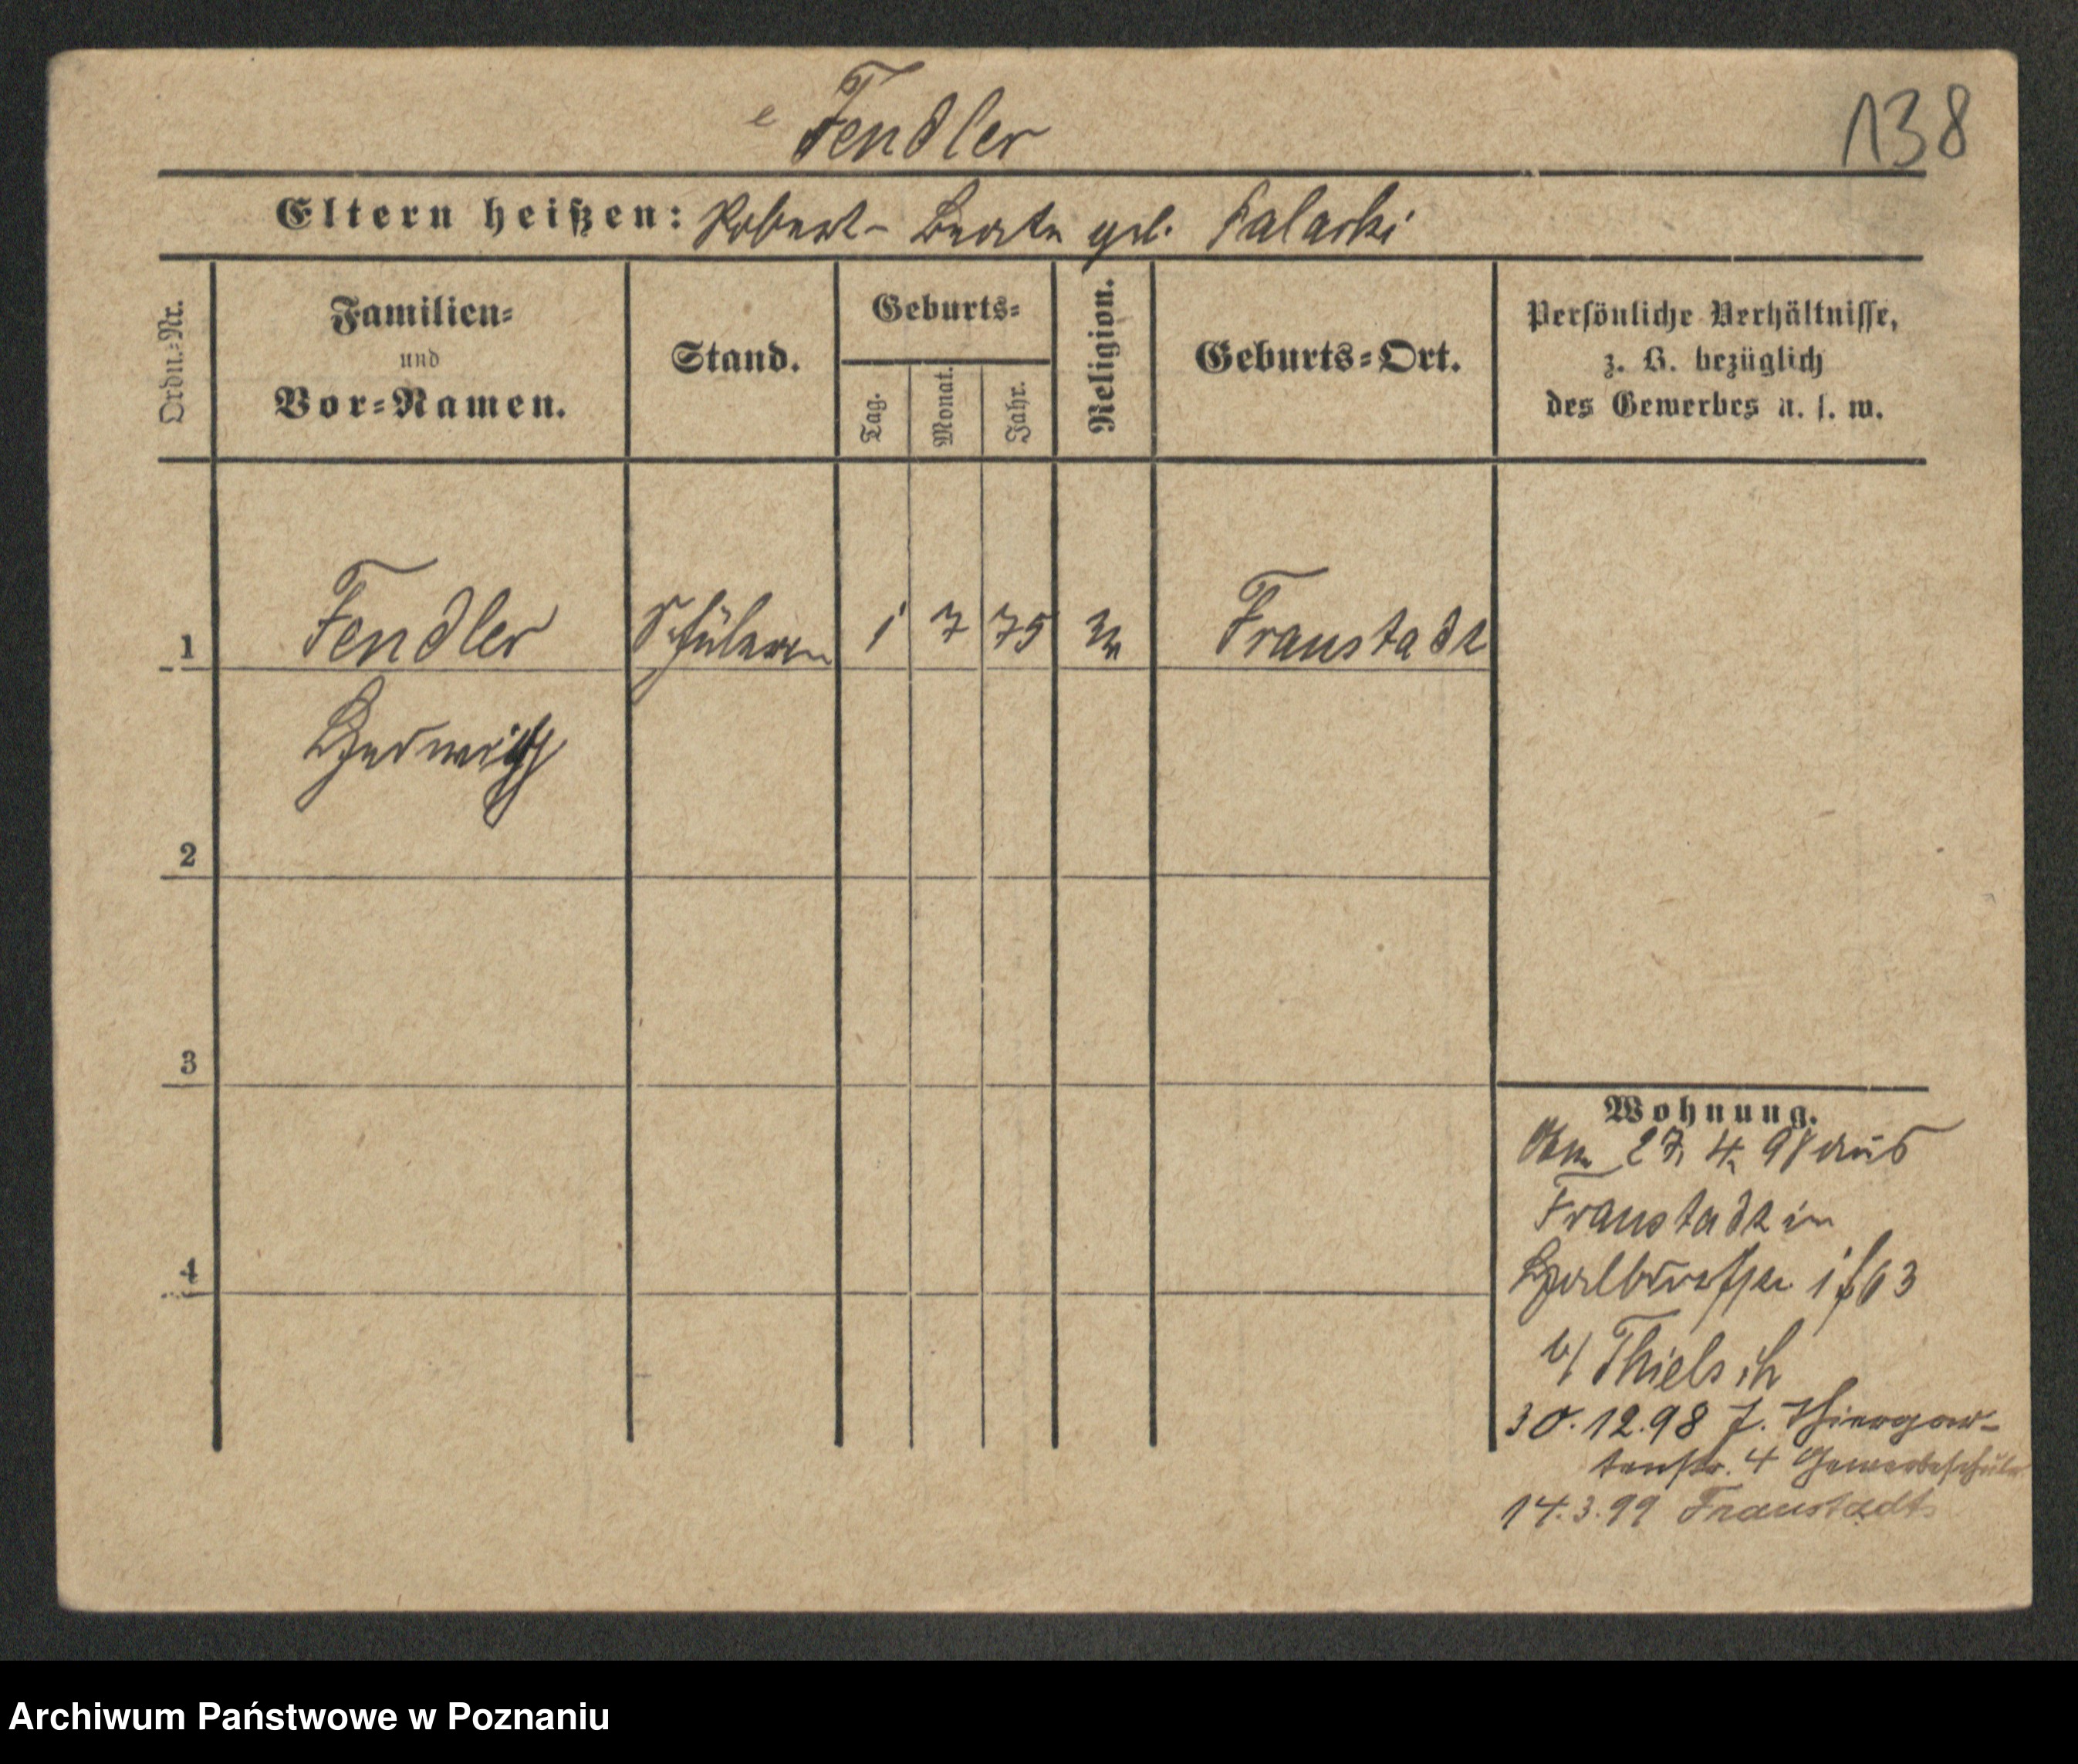 e Fendler
138
Eltern heißen: Robert - Beate geb. Salaski
Ordn.-Nr.
Familien-
und
Vor-Namen.
Stand.
Geburts-
Tag.
Monat.
Jahr.
Religion.
Geburts-Ort.
Persönliche Verhältnisse,
z. B. bezüglich
des Gewerbes u. s. w.
1 Fendler Schülerin 1 7 75 Fraustadt
Hedwig
2
3
4
Wohnung.
Am 27. 4. 98 aus
Fraustadt in
Halbdorfstr. 63
b/ Thielsch
30.12.98 J. Thiergar-
tenstr. 4 Gewerbeschüle
14.3.99 Fraustadt
Archiwum Państwowe w Poznaniu